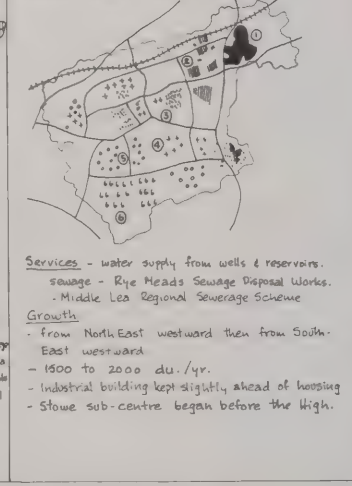 1
2
3
4
5
6
Services - water supply from wells & reservoirs.
sewage - Rye Meads Sewage Disposal Works.
- Middle Lea Regional Sewerage Scheme
Growth
- from North East westward then from South-
East westward
- 1500 to 2000 du./yr.
- Industrial building kept slightly ahead of housing
- Stowe sub-centre began before the High.